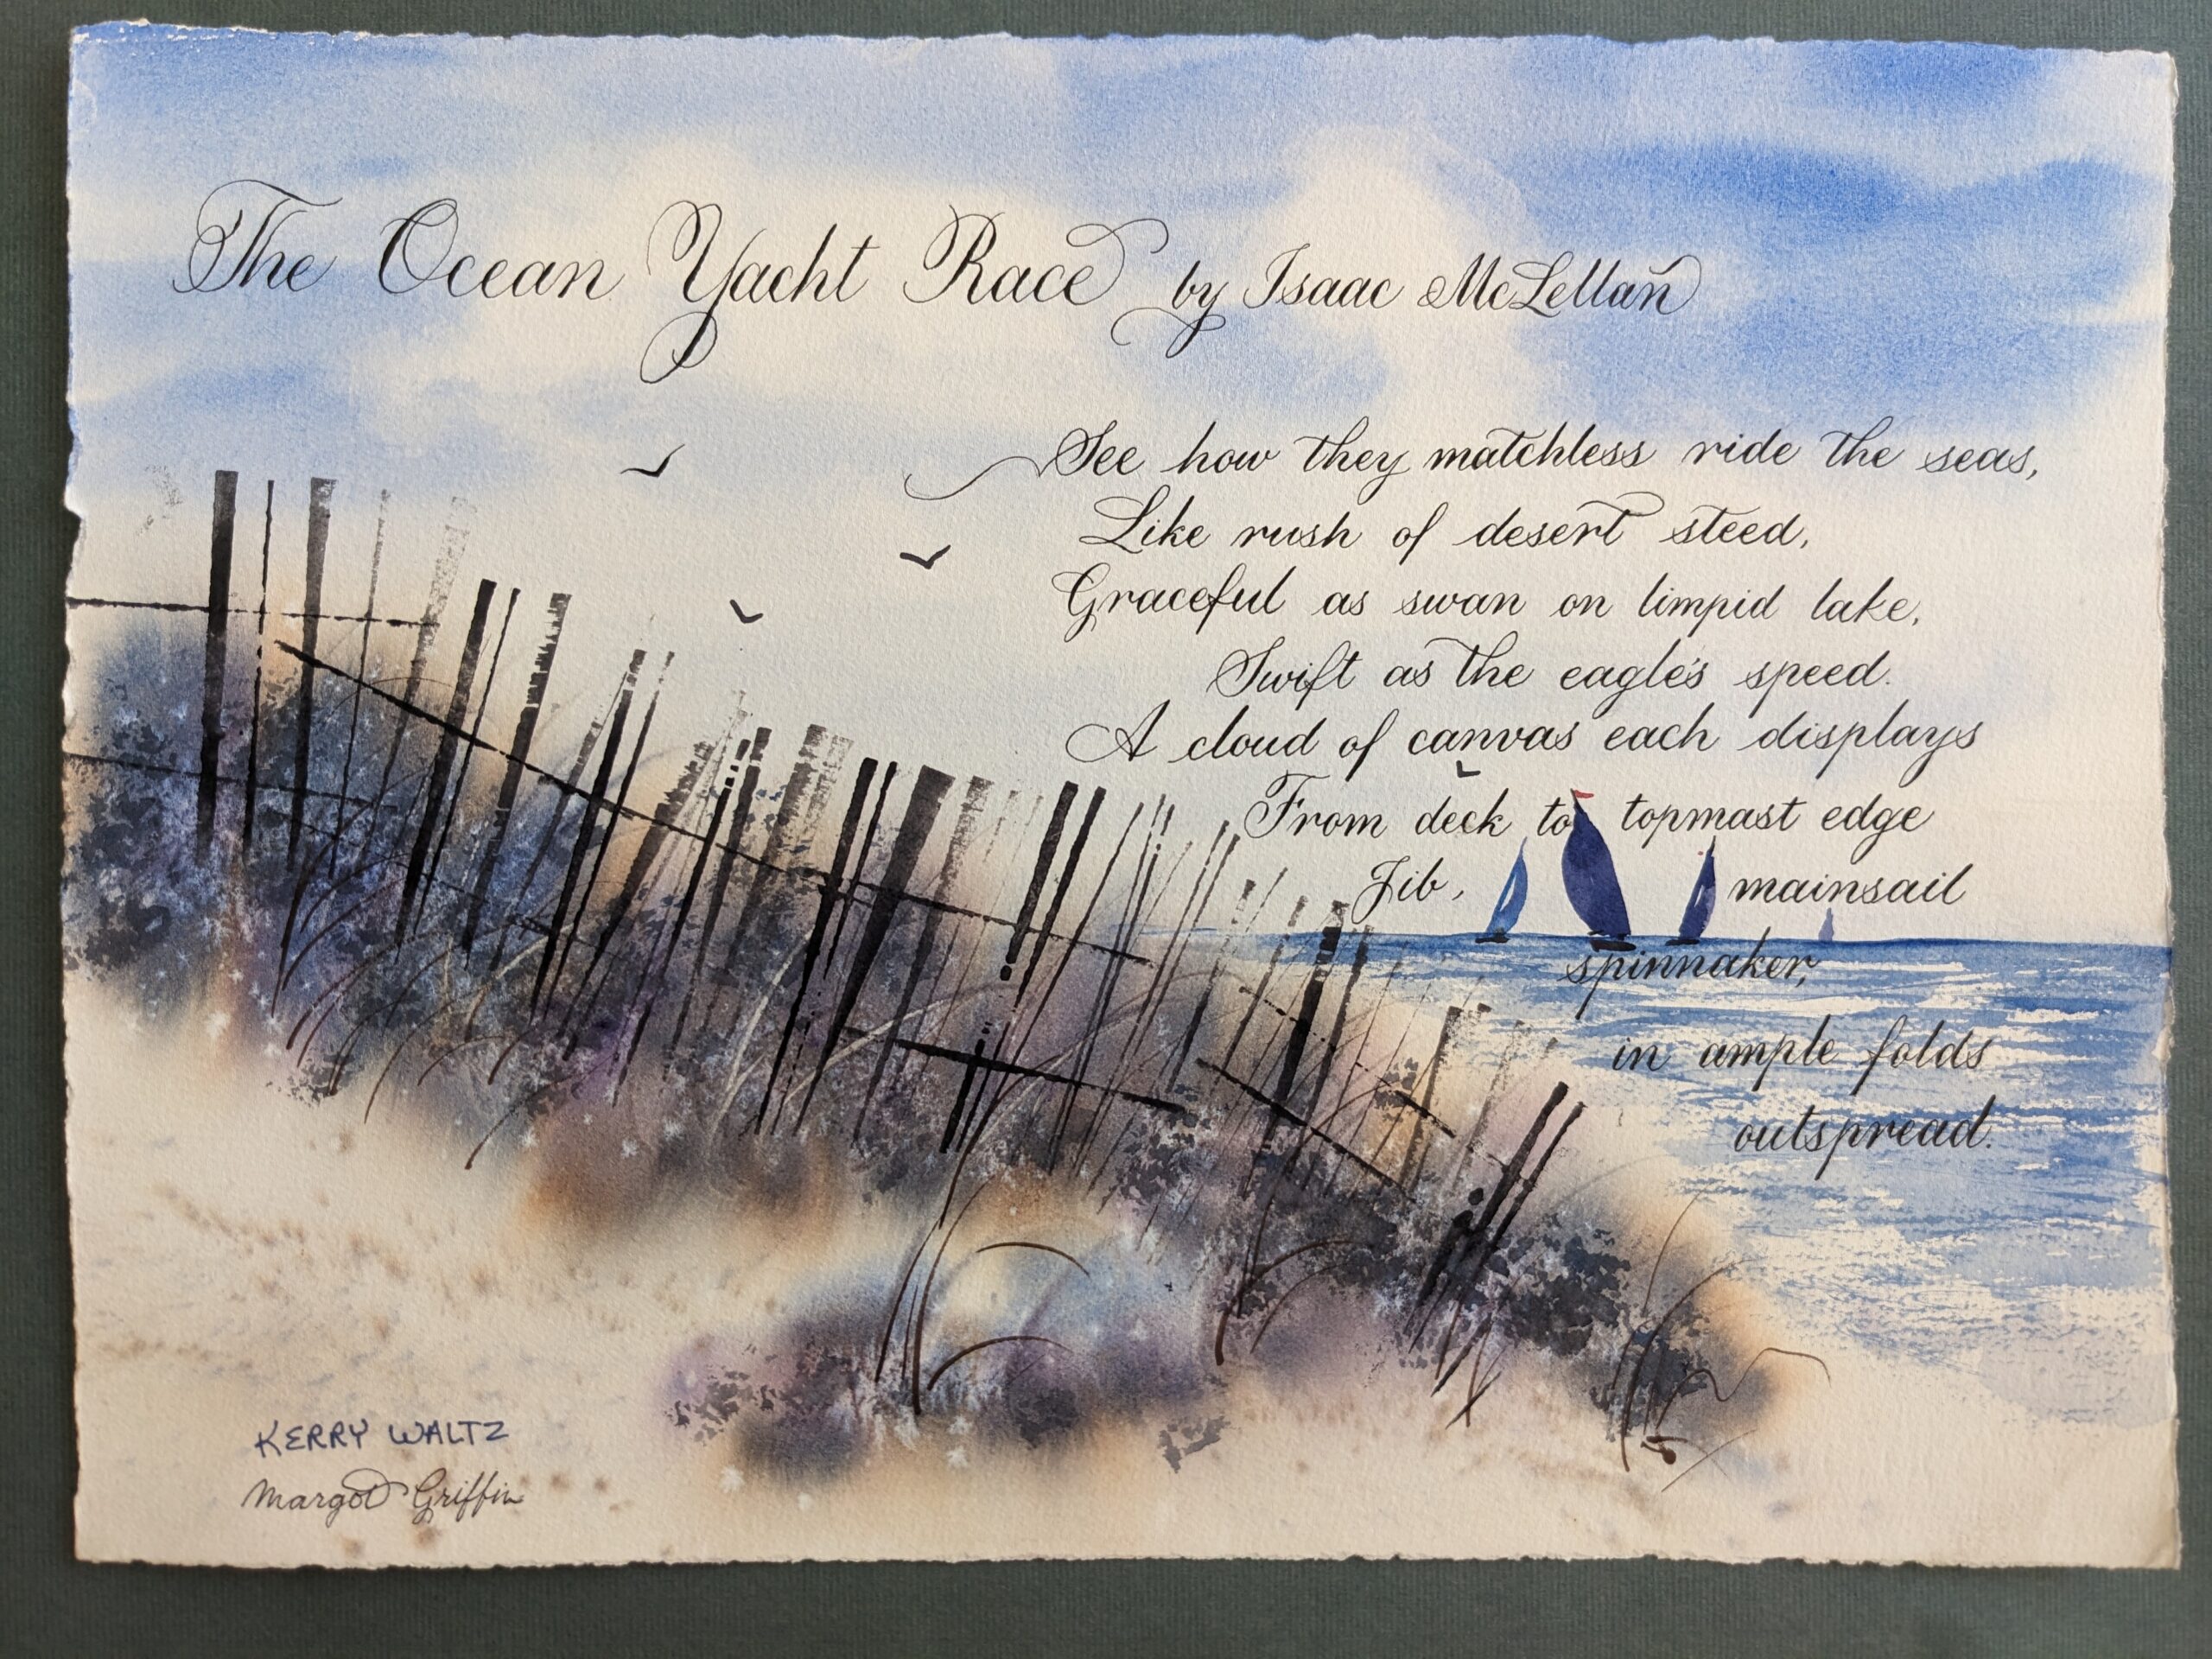 The Ocean Yacht Race by Isaac McLellan
See how they matchless ride the seas,
Like rush of desert steed,
Graceful as swan on limpid lake,
Swift as the eagle's speed.
A cloud of canvas each displays
From deck to topmast edge
Jib, mainsail
spinnaker,
in ample folds
outspread.
KERRY WALTZ
Margot Griffin